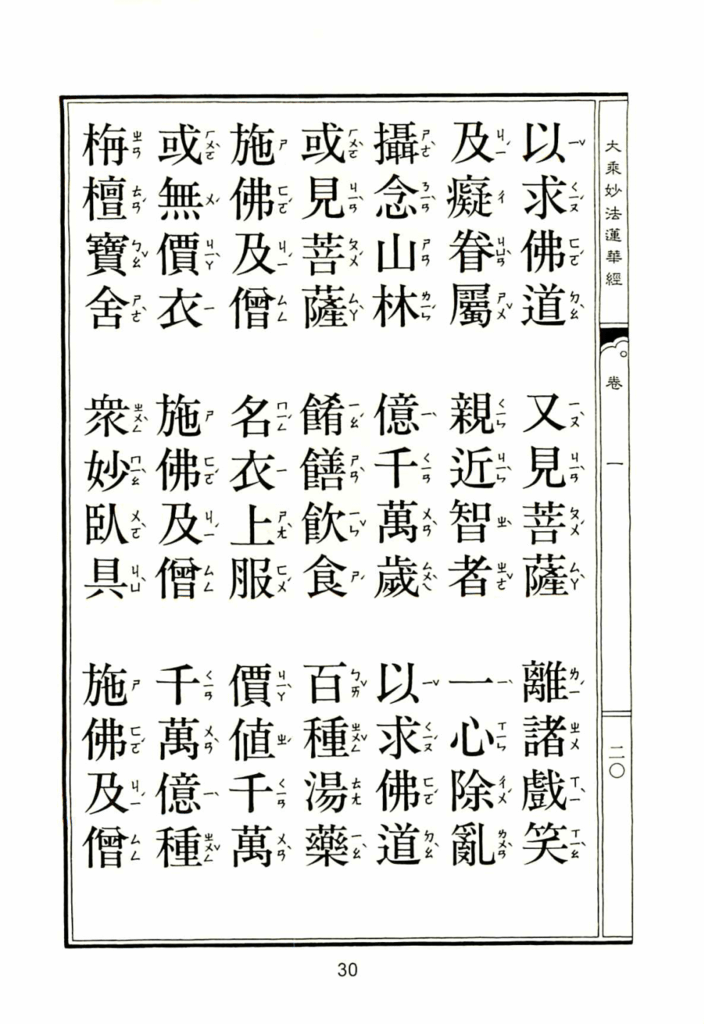 大乘妙法蓮華經 卷一 二〇
以求佛道 又見菩薩 離諸戲笑
及癡眷屬 親近智者 一心除亂
攝念山林 億千萬歲 以求佛道
或見菩薩 餚饍飲食 百種湯藥
施佛及僧 名衣上服 價值千萬
或無價衣 施佛及僧 千萬億種
栴檀寶舍 衆妙臥具 施佛及僧
30